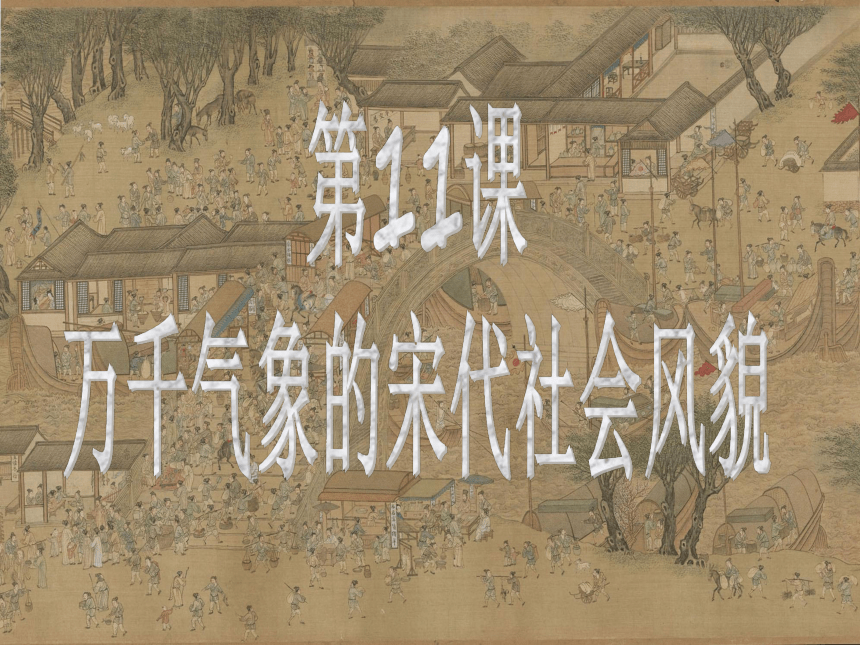 第11课
万千气象的宋代社会风貌